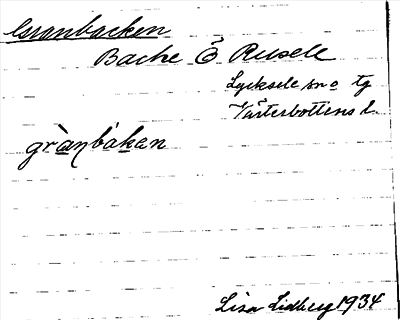 Granbacken
Backe Ö Rusele
Lycksele sn o tg
Västerbottens l.
gràŋbákan
Lisa Lidberg 1934